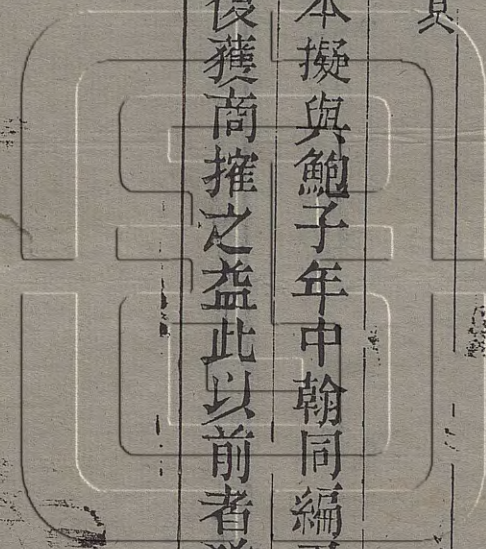 本擬與鮑子年中翰同編
後獲商搉之益此以前者